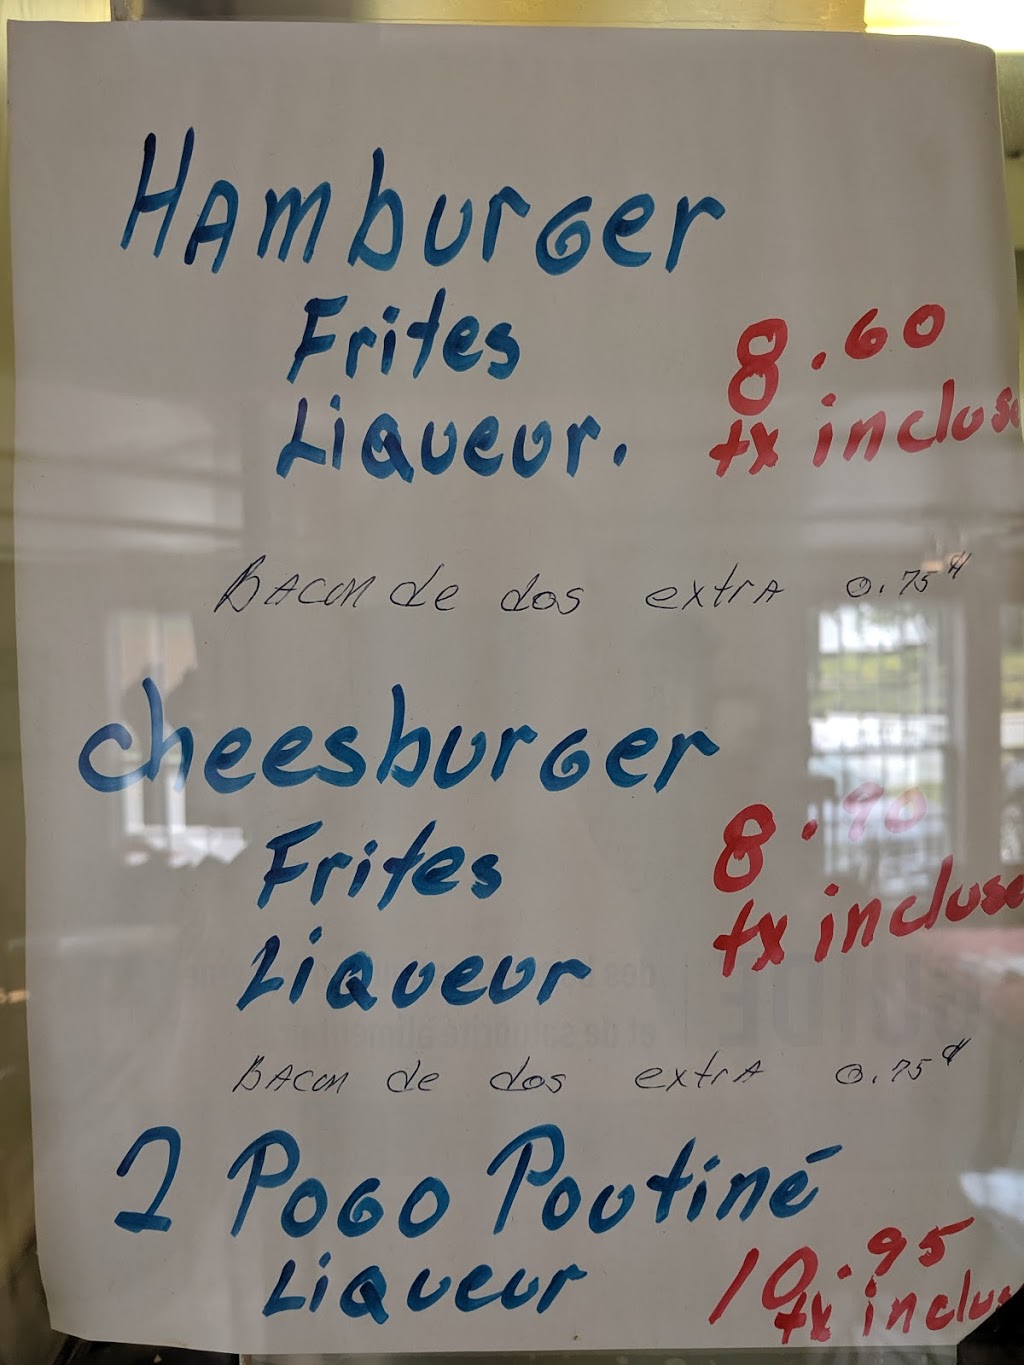 Hamburger
Frites
Liqueur.
8.60
tx incluse
Bacon de dos extra 0.75¢
cheesburger
Frites
Liqueur
8.90
tx incluse
Bacon de dos extra 0.75¢
2 Pogo Poutiné
Liqueur
10.95
tx inclus